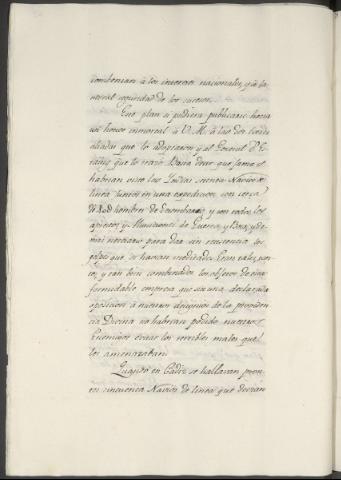 combenian á los intereses nacionales, y á la
natural seguridad de los sucesos.
Este plan si pudiera publicarse haria
un honor inmortal á V. M. á las dos Cortes
aliadas que lo adoptaron y al General D'E
staing que lo trazó. Basta decir que jamas se
habrian visto las Indias setenta Navios de
linea juntos en una expedicion, con cerca
de 40D hombres de Desembarco, y con todos los
aprestos, y Municiones de Guerra, y Boca, y de-
mas necesario para dar sin resistencia los
golpes que se havian meditado. Eran tales, tan-
tos, y tan bien combinados los objetos de esta
formidable empresa que sin una declarada
oposicion á nuestros designios de la providen
cia Divina no habrian podido nuestros
Enemigos evitar los terribles males que
les amenazaban.
Quando en Cadiz se hallavan pron-
tos cincuenta Navios de linea que devian